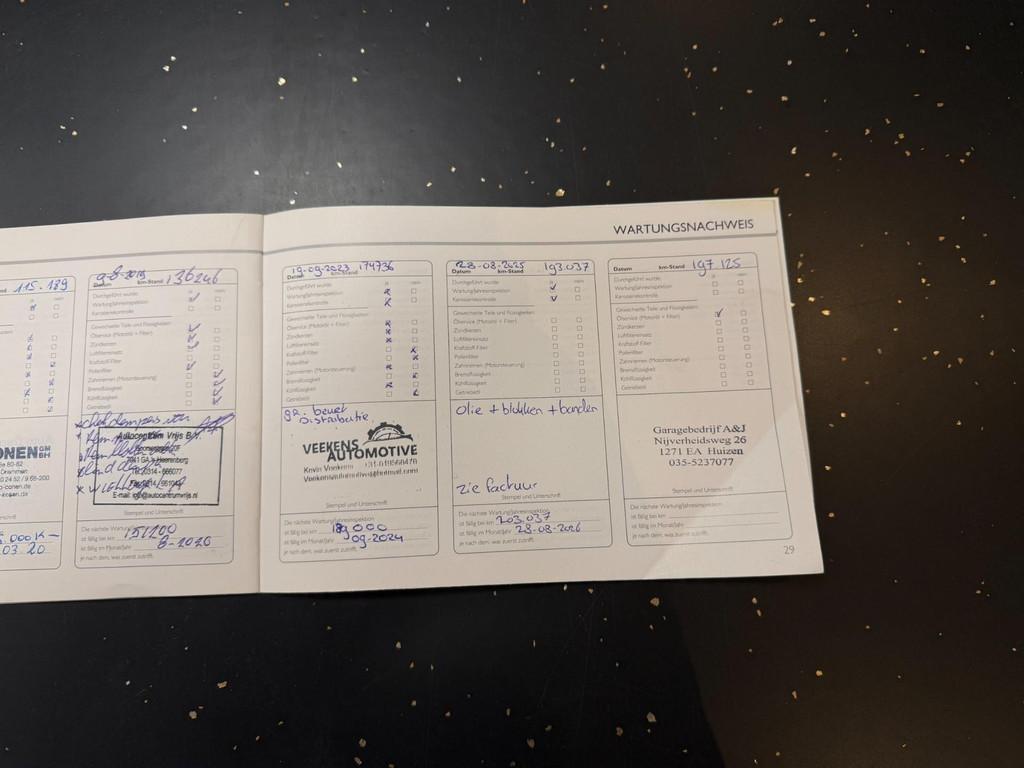 WARTUNGSNACHWEIS
115.189
ONEN GM BH
03.20
9-8-2019 km-Stand 136246
Durchgeführt wurde: ja nein
Wartung/Jahresinspektion
Karosseriekontrolle
Gewechselte Teile und Flüssigkeiten:
Ölservice (Motoröl + Filter)
Zündkerzen
Luftfiltereinsatz
Kraftstoff Filter
Pollenfilter
Zahnriemen (Motorsteuerung)
Bremsflüssigkeit
Kühlflüssigkeit
Getriebeöl
Autocentrum Vrijs B.V.
E-mail: info@autocentrumvrijs.nl
Stempel und Unterschrift
Die nächste Wartung
ist fällig bei km 151200
ist fällig im Monat/Jahr 8-2020
je nach dem, was zuerst zutrifft.
19-09-2023 174736
Datum km-Stand
Durchgeführt wurde: ja nein
Wartung/Jahresinspektion
Karosseriekontrolle
Gewechselte Teile und Flüssigkeiten:
Ölservice (Motoröl + Filter)
Zündkerzen
Luftfiltereinsatz
Kraftstoff Filter
Pollenfilter
Zahnriemen (Motorsteuerung)
Bremsflüssigkeit
Kühlflüssigkeit
Getriebeöl
gr. beurt
Distributie
VEEKENS
AUTOMOTIVE
Kevin Veekens
Veekensautomotive@hotmail.com
Stempel und Unterschrift
Die nächste Wartung/Jahresinspektion
ist fällig bei km
ist fällig im Monat/Jahr 09-2024
je nach dem, was zuerst zutrifft.
28-08-2025 193.037
Datum km-Stand
Durchgeführt wurde: ja nein
Wartung/Jahresinspektion
Karosseriekontrolle
Gewechselte Teile und Flüssigkeiten:
Ölservice (Motoröl + Filter)
Zündkerzen
Luftfiltereinsatz
Kraftstoff Filter
Pollenfilter
Zahnriemen (Motorsteuerung)
Bremsflüssigkeit
Kühlflüssigkeit
Getriebeöl
olie + blokken + banden
zie factuur
Stempel und Unterschrift
Die nächste Wartung/Jahresinspektion
ist fällig bei km 203.037
ist fällig im Monat/Jahr 28-08-2026
je nach dem, was zuerst zutrifft.
Datum km-Stand 197.125
Durchgeführt wurde: ja nein
Wartung/Jahresinspektion
Karosseriekontrolle
Gewechselte Teile und Flüssigkeiten:
Ölservice (Motoröl + Filter)
Zündkerzen
Luftfiltereinsatz
Kraftstoff Filter
Pollenfilter
Zahnriemen (Motorsteuerung)
Bremsflüssigkeit
Kühlflüssigkeit
Getriebeöl
Garagebedrijf A&J
Nijverheidsweg 26
1271 EA Huizen
035-5237077
Stempel und Unterschrift
Die nächste Wartung/Jahresinspektion
ist fällig bei km
ist fällig im Monat/Jahr
je nach dem, was zuerst zutrifft.
29